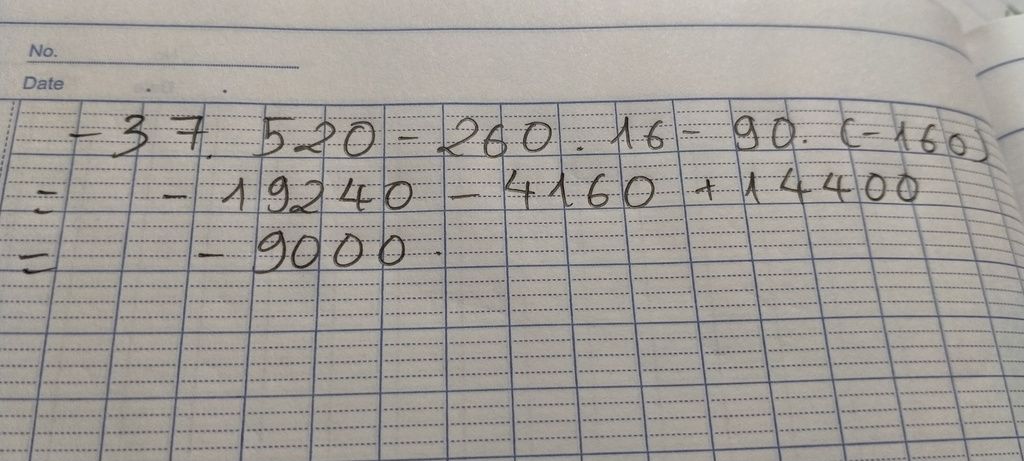 No.
Date
- 37. 520 - 260. 16 - 90. (-160)
= - 19240 - 4160 + 14400
= - 9000.